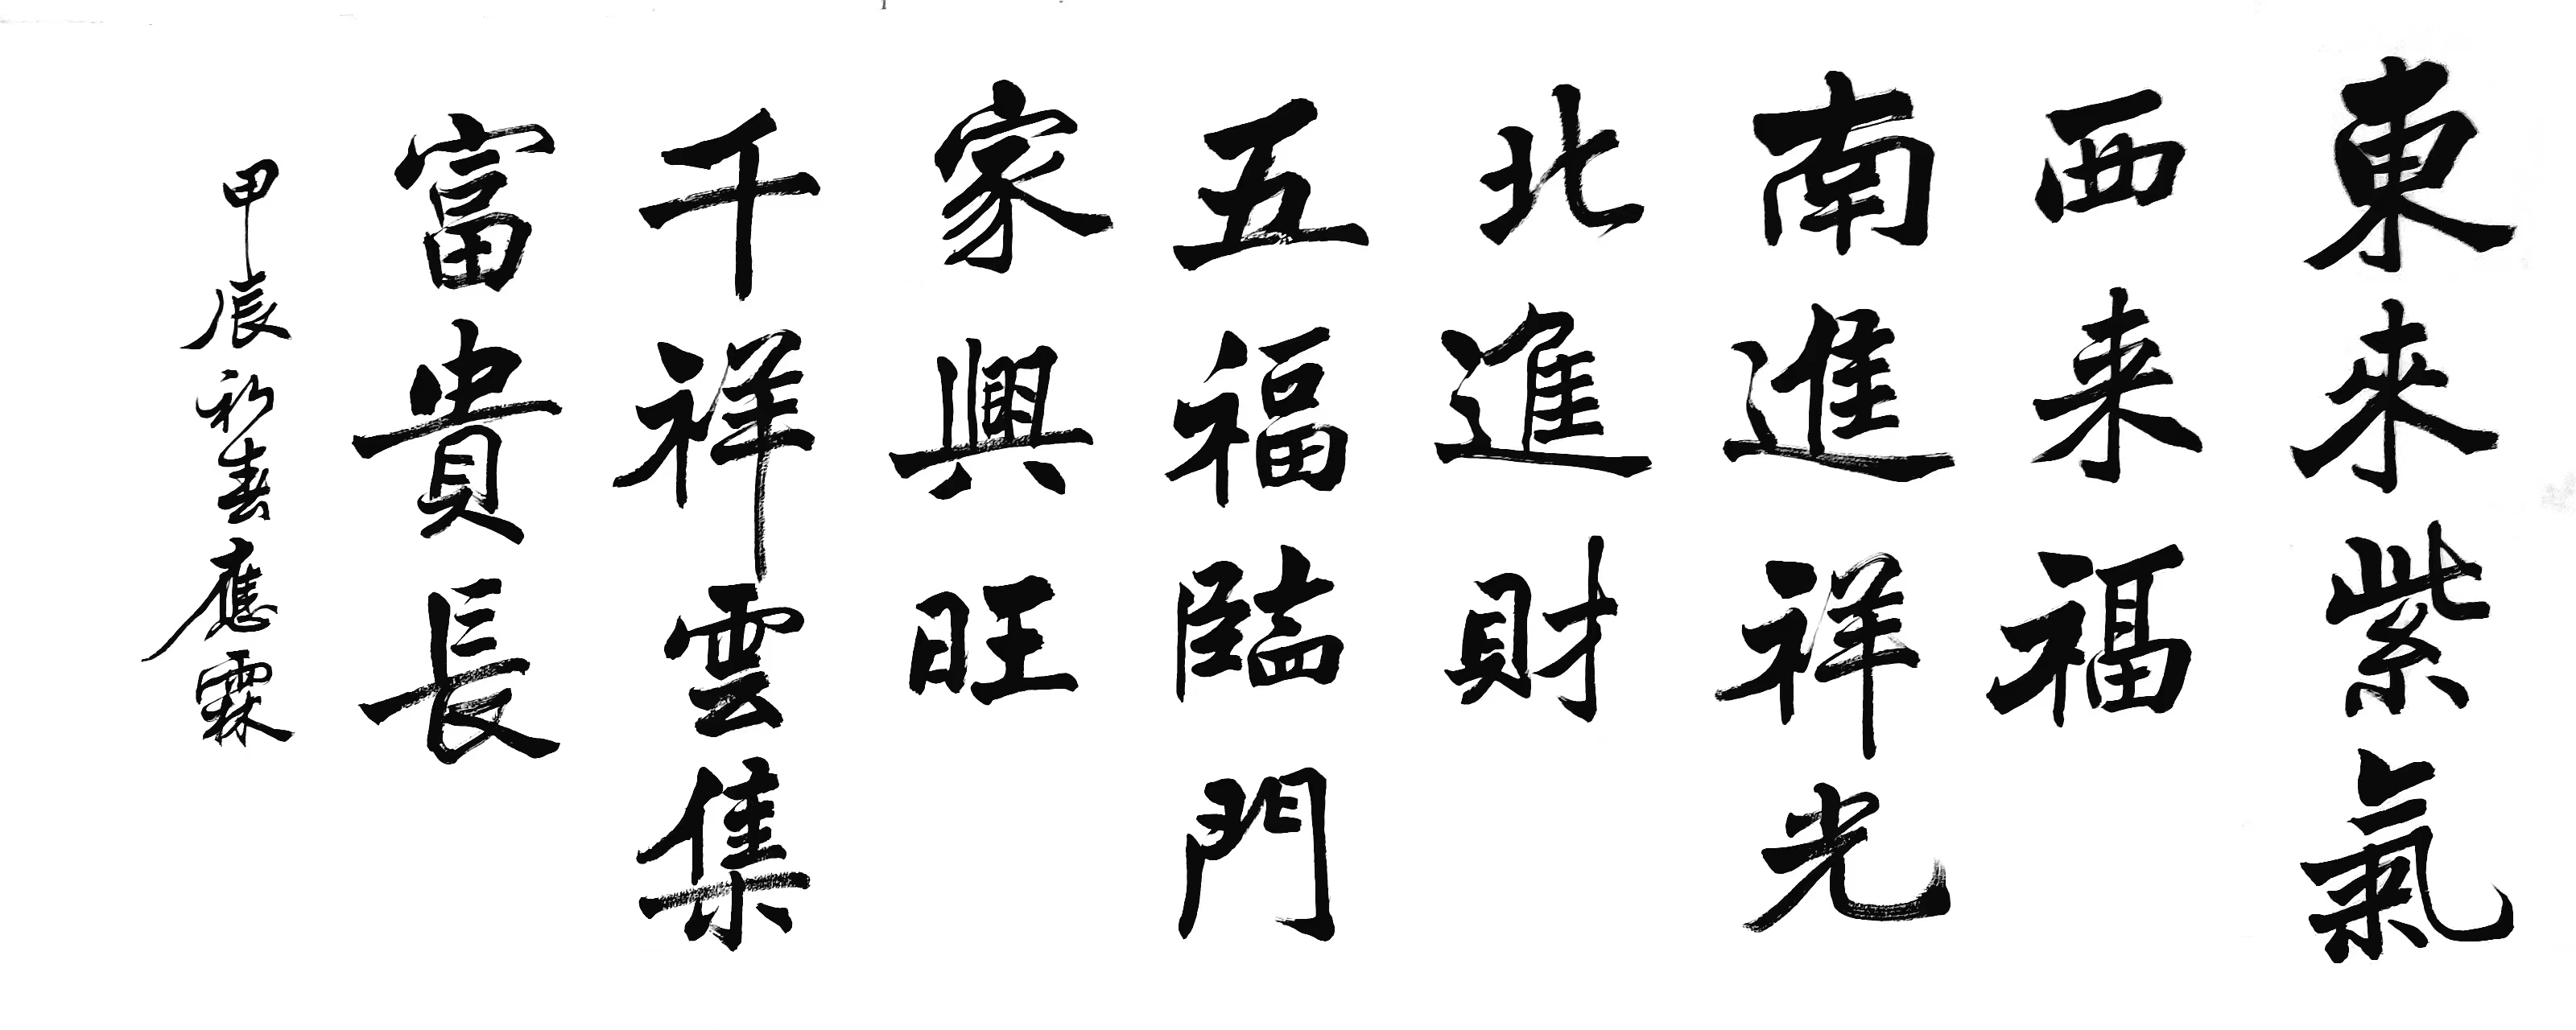 東來紫氣
西来福
南進祥光
北進財
五福臨門
家興旺
千祥雲集
富貴長
甲辰初春應霖